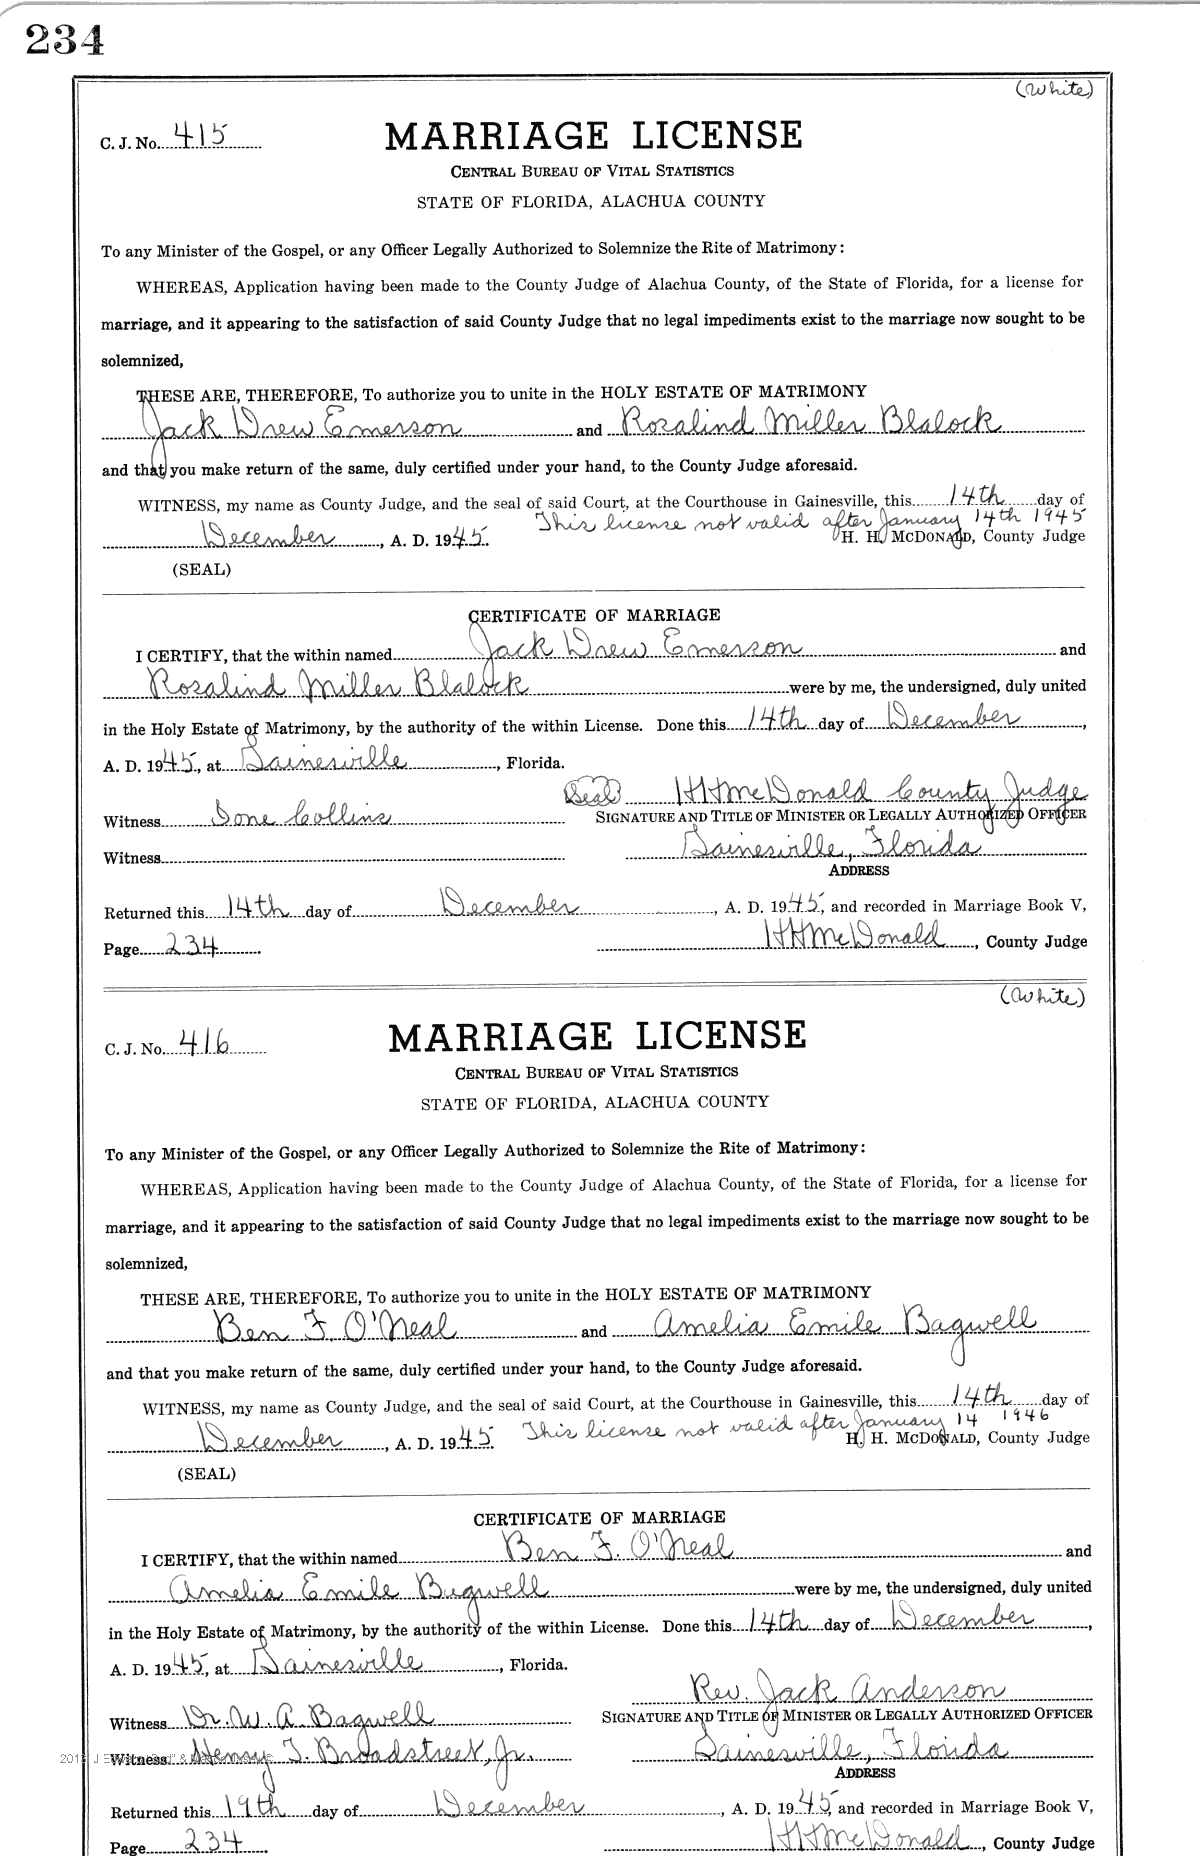 234
(White)
C. J. No. 415
MARRIAGE LICENSE
CENTRAL BUREAU OF VITAL STATISTICS
STATE OF FLORIDA, ALACHUA COUNTY
To any Minister of the Gospel, or any Officer Legally Authorized to Solemnize the Rite of Matrimony:
WHEREAS, Application having been made to the County Judge of Alachua County, of the State of Florida, for a license for
marriage, and it appearing to the satisfaction of said County Judge that no legal impediments exist to the marriage now sought to be
solemnized,
THESE ARE, THEREFORE, To authorize you to unite in the HOLY ESTATE OF MATRIMONY
Jack Drew Emerson and Rosalind Miller Blalock
and that you make return of the same, duly certified under your hand, to the County Judge aforesaid.
WITNESS, my name as County Judge, and the seal of said Court, at the Courthouse in Gainesville, this 14th day of
This license not valid after January 14th 1945
December, A. D. 1945. H. H. MCDONALD, County Judge
(SEAL)
CERTIFICATE OF MARRIAGE
I CERTIFY, that the within named Jack Drew Emerson and
Rosalind Miller Blalock were by me, the undersigned, duly united
in the Holy Estate of Matrimony, by the authority of the within License. Done this 14th day of December,
A. D. 1945, at Gainesville, Florida.
Seal HHMcDonald County Judge
Witness Ione Collins SIGNATURE AND TITLE OF MINISTER OR LEGALLY AUTHORIZED OFFICER
Witness Gainesville, Florida
ADDRESS
Returned this 14th day of December, A. D. 1945, and recorded in Marriage Book V,
Page 234 HHMcDonald, County Judge
(White)
C. J. No. 416
MARRIAGE LICENSE
CENTRAL BUREAU OF VITAL STATISTICS
STATE OF FLORIDA, ALACHUA COUNTY
To any Minister of the Gospel, or any Officer Legally Authorized to Solemnize the Rite of Matrimony:
WHEREAS, Application having been made to the County Judge of Alachua County, of the State of Florida, for a license for
marriage, and it appearing to the satisfaction of said County Judge that no legal impediments exist to the marriage now sought to be
solemnized,
THESE ARE, THEREFORE, To authorize you to unite in the HOLY ESTATE OF MATRIMONY
Ben F O'Neal and Amelia Emile Bagwell
and that you make return of the same, duly certified under your hand, to the County Judge aforesaid.
WITNESS, my name as County Judge, and the seal of said Court, at the Courthouse in Gainesville, this 14th day of
This license not valid after January 14 1946
December, A. D. 1945. H. H. MCDONALD, County Judge
(SEAL)
CERTIFICATE OF MARRIAGE
I CERTIFY, that the within named Ben F. O'Neal and
Amelia Emile Bugwell were by me, the undersigned, duly united
in the Holy Estate of Matrimony, by the authority of the within License. Done this 14th day of December,
A. D. 1945, at Gainesville, Florida.
Rev. Jack Anderson
Witness Dr. W. A. Bagwell SIGNATURE AND TITLE OF MINISTER OR LEGALLY AUTHORIZED OFFICER
Witness Henry T. Broadstreet, Jr. Gainesville, Florida
ADDRESS
Returned this 19th day of December, A. D. 1945, and recorded in Marriage Book V,
Page 234 HHMcDonald, County Judge